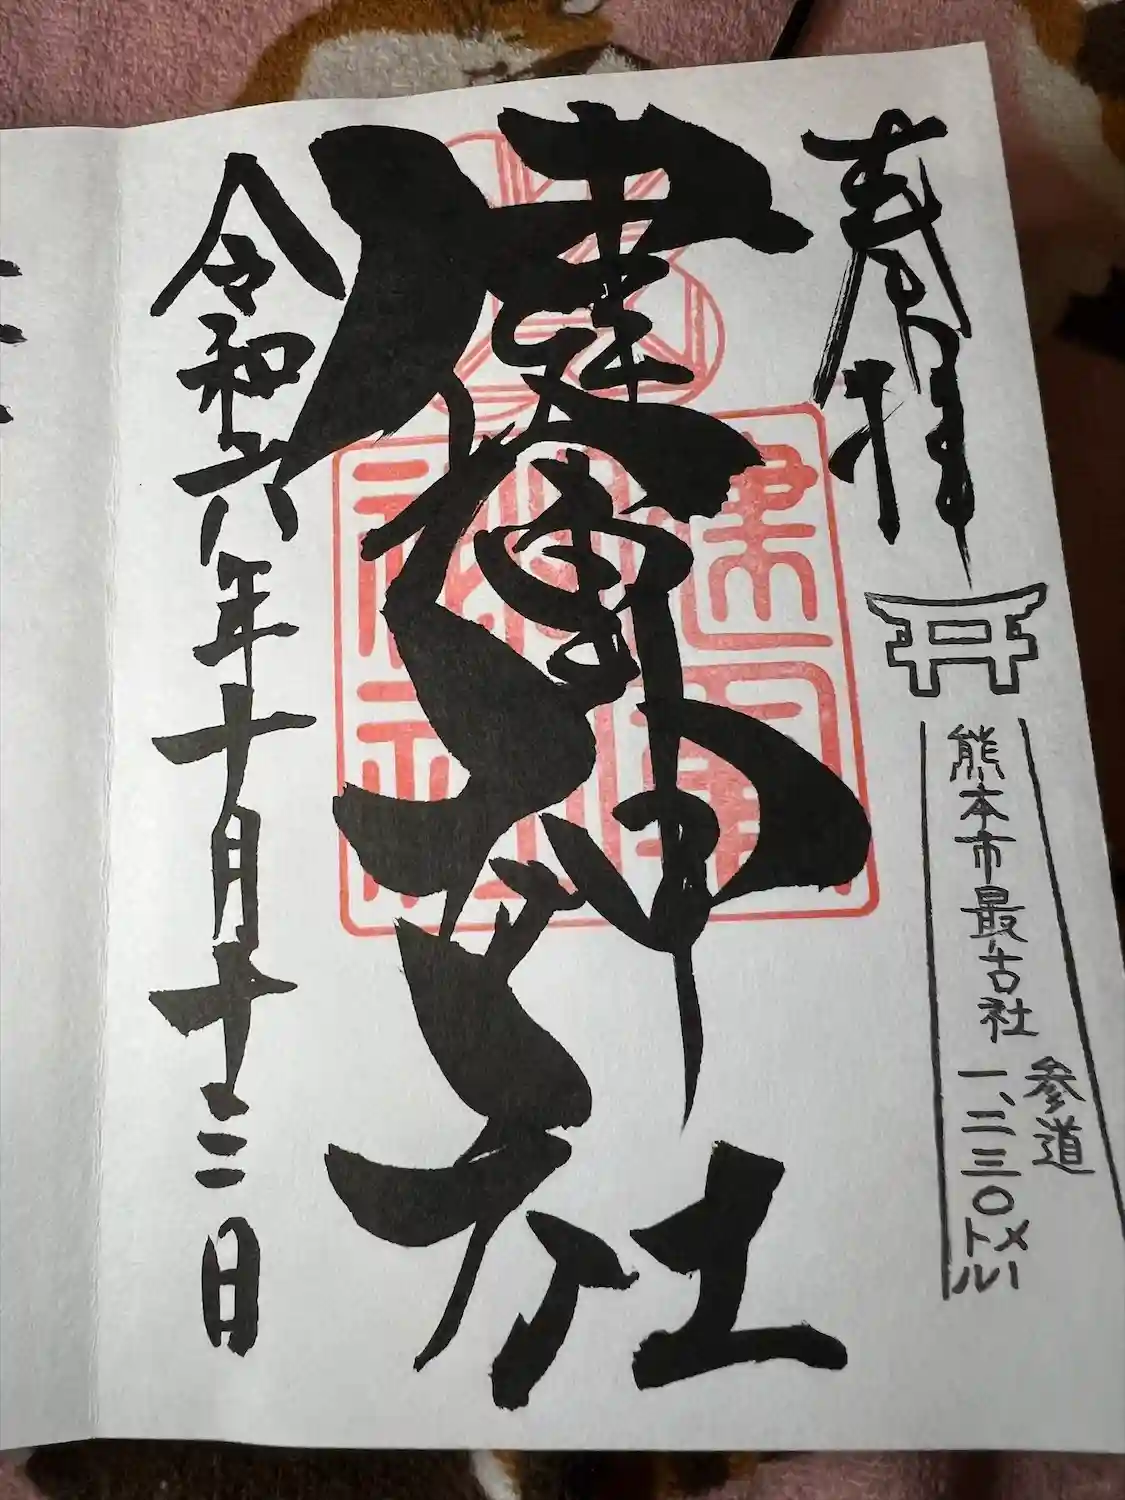 奉拝
熊本市最古社
参道
一、二三〇メートル
健軍神社
令和六年十月十三日
健軍神社